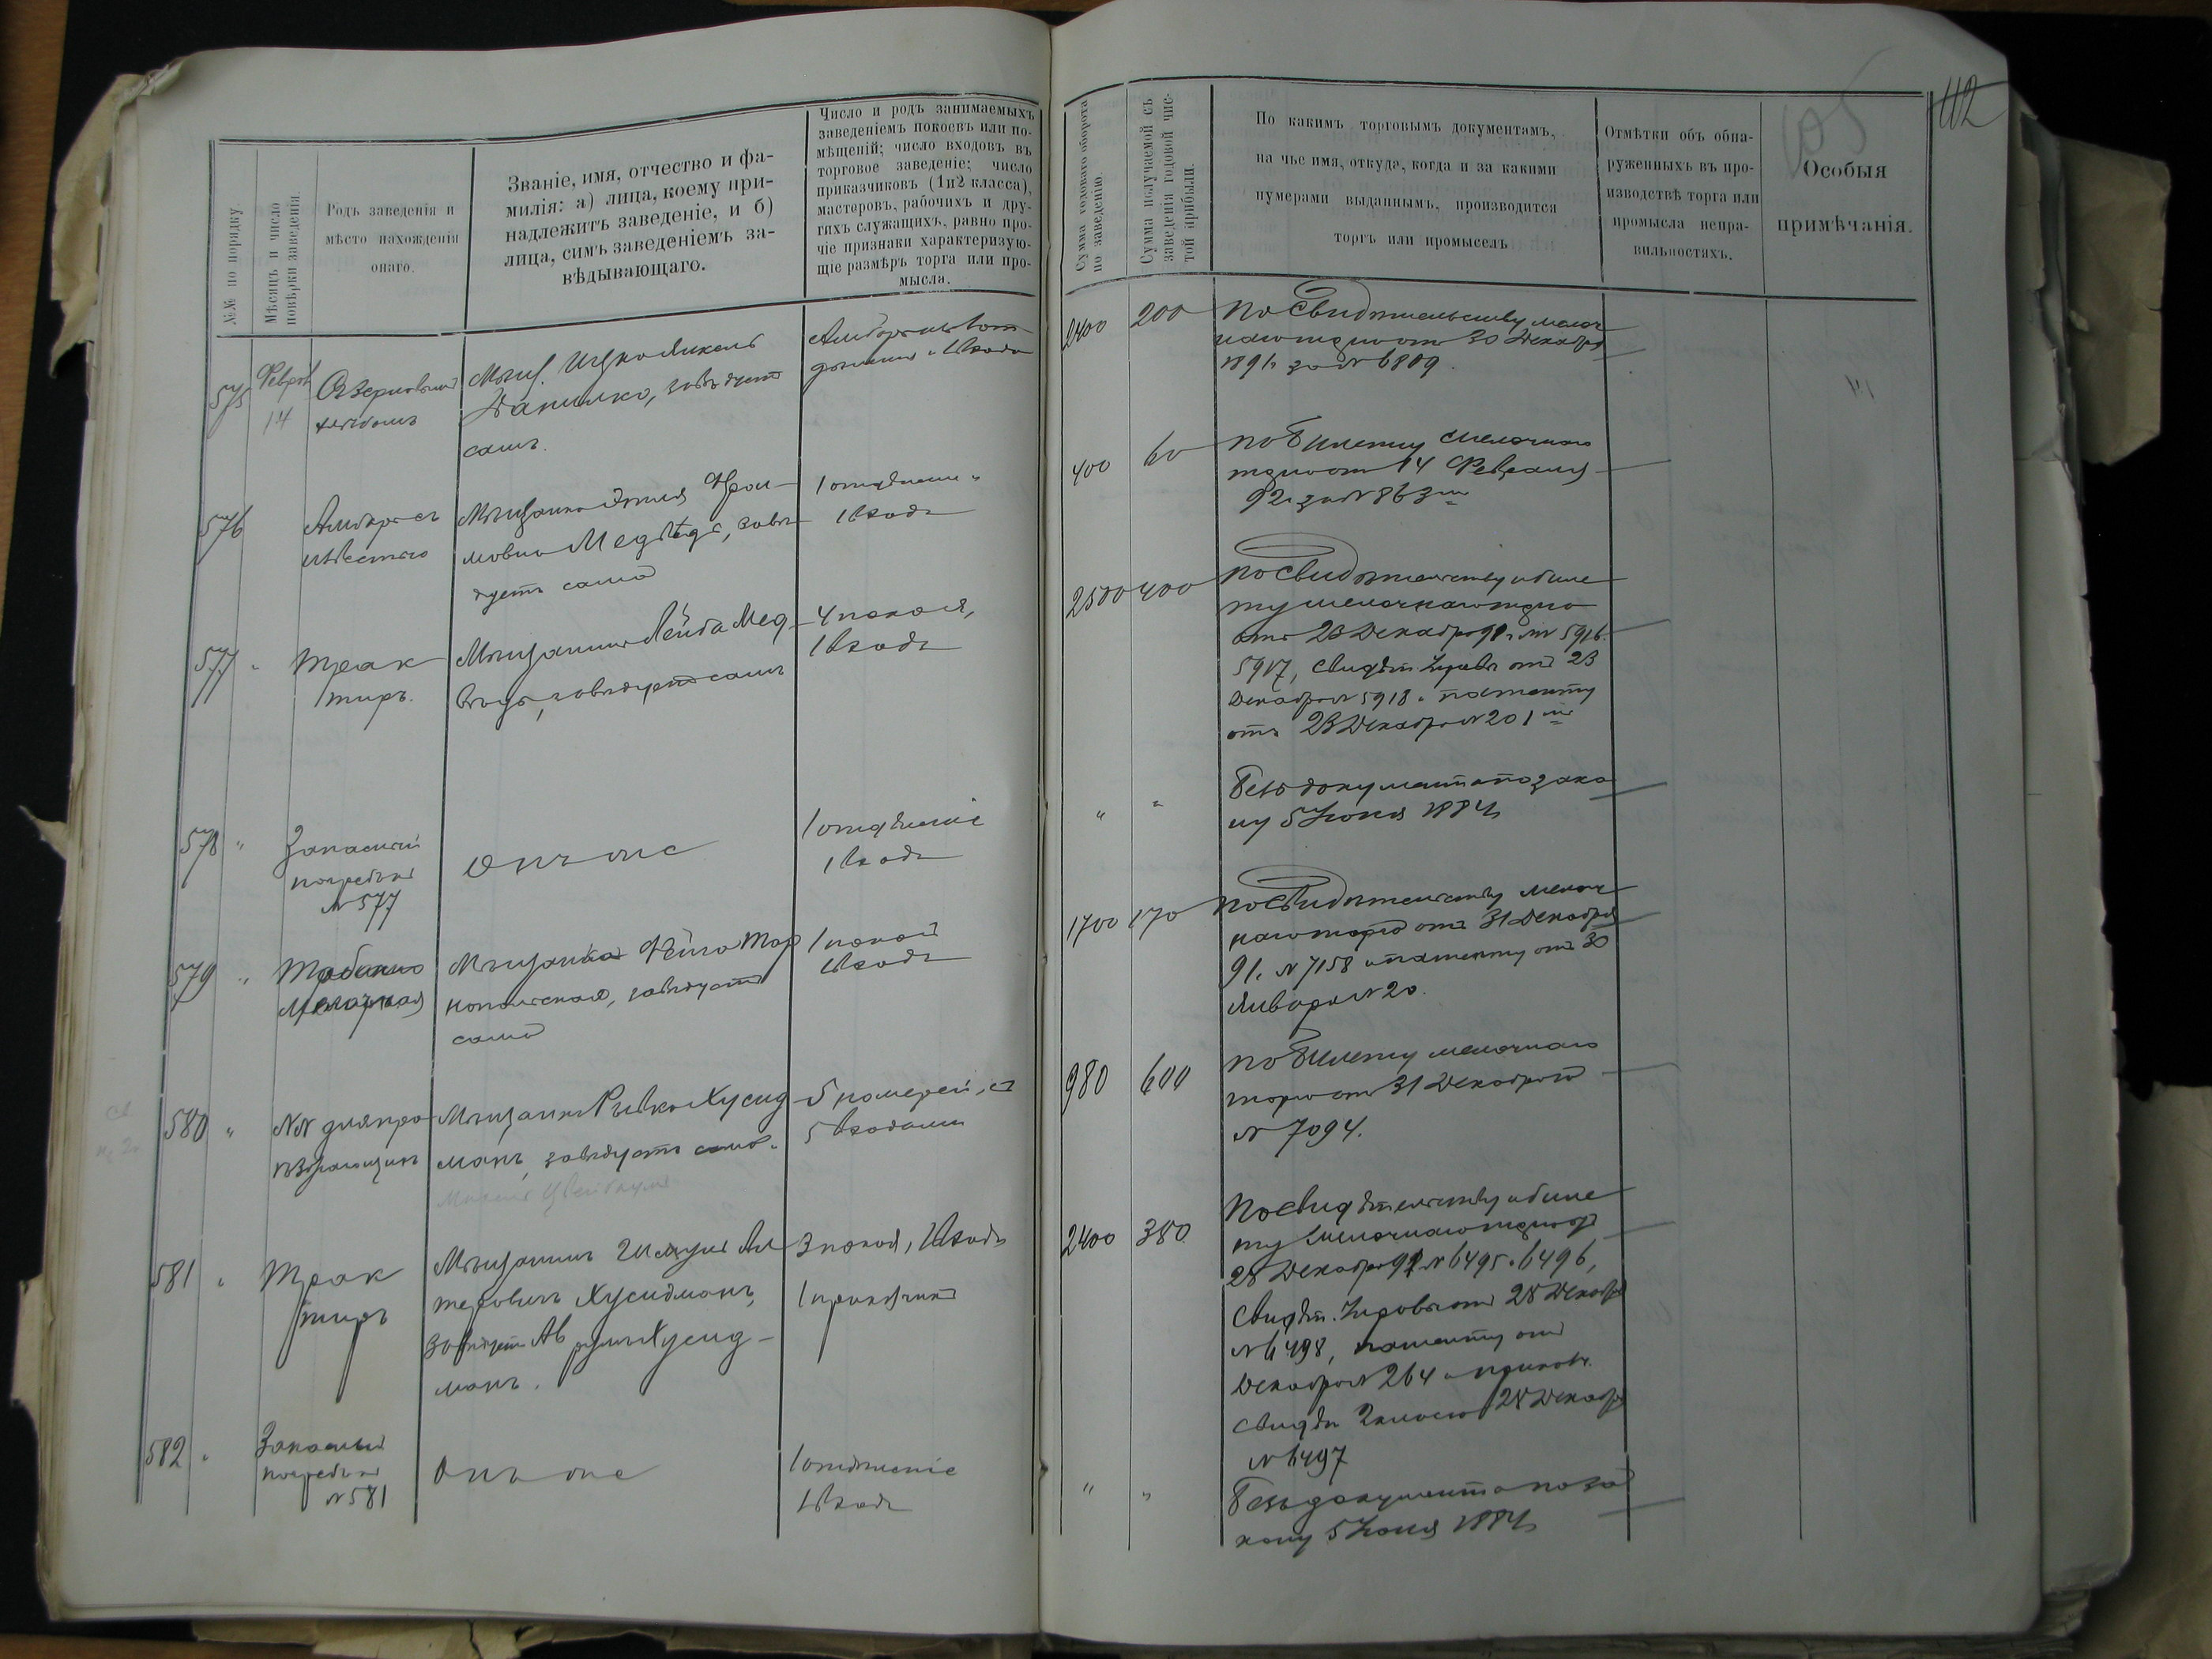 112
105
№№ по порядку.
Мѣсяцъ и число
повѣрки заведенія.
Родъ заведенія и
мѣсто нахожденія
онаго.
Званіе, имя, отчество и фа-
милія: а) лица, коему при-
надлежитъ заведеніе, и б)
лица, симъ заведеніемъ за-
вѣдывающаго.
Число и родъ занимаемыхъ
заведеніемъ покоевъ или по-
мѣщеній; число входовъ въ
торговое заведеніе; число
приказчиковъ (1и2 класса),
мастеровъ, рабочихъ и дру-
гихъ служащихъ, равно про-
чіе признаки характеризую-
щіе размѣръ торга или про-
мысла.
Сумма годового оборота
по заведенію.
Сумма получаемой съ
заведенія годовой чис-
той прибыли.
По какимъ торговымъ документамъ,
на чье имя, откуда, когда и за какими
нумерами выданнымъ, производится
торгъ или промыселъ
Отмѣтки объ обна-
руженныхъ въ про-
изводствѣ торга или
промысла непра-
вильностяхъ.
Особыя
примѣчанія.
575
14
Мѣщ. Ицко
Данилко, завѣдуетъ
самъ.
2400
200
По свидѣтельству мелоч
наго торга отъ 30 Декабря
1891 г за № 6809
576
Амбаръ съ
известью
Мѣщанка
Медвѣдь, завѣ
дуетъ сама
1 отдѣленіе
1 входъ
400
60
по билету мелочнаго
торга отъ 14 Февраля
92 г за № 863
577
Трак
тиръ.
Мѣщанинъ Лейба Мед
вѣдь, завѣдуетъ самъ
4 покоя,
1 входъ
2500
400
По свидѣтельству и биле
ту мелочнаго торга
отъ 23 Декабря 91 г № 5916
5917, свидѣт. отъ 23
Декабря № 5918 и патенту
отъ 23 Декабря № 201
578
Запасный
погребъ
№ 577
Онъ же
1 отдѣленіе
1 входъ
Безъ документа по зако
ну 5 Іюня 1884 г
579
Табачно
мелочная
Мѣщанка Фейга Тар
нопольская, завѣдуетъ
сама
1 покой
1 входъ
1700
170
По свидѣтельству мелоч
наго торга отъ 31 Декабря
91 г. № 7158 и патенту отъ 30
Января № 20.
580
№№ для про
ѣзжающихъ
Мѣщанка Рывка Хусид
манъ, завѣдуетъ сама.
5 номеровъ, съ
5 входами
980
600
по билету мелочнаго
торга отъ 31 Декабря
№ 7094.
581
Трак
тиръ
Мѣщанинъ Шмуль Ал
теровичъ Хусидманъ,
завѣдуетъ Хусид
манъ.
3 покоя, 1 входъ
1 приказчикъ
2400
380
По свидѣтельству и биле
ту мелочнаго торга отъ
28 Декабря 91 № 6495 и 6496,
свидѣт. отъ 28 Декабря
№ 6498, патенту отъ
Декабря № 264 и приказч.
свидѣт. 2 класса 28 Декабря
№ 6497
582
Запасный
погребъ
№ 581
Онъ же
1 отдѣленіе
1 входъ
Безъ документа по за
кону 5 Іюня 1884 г